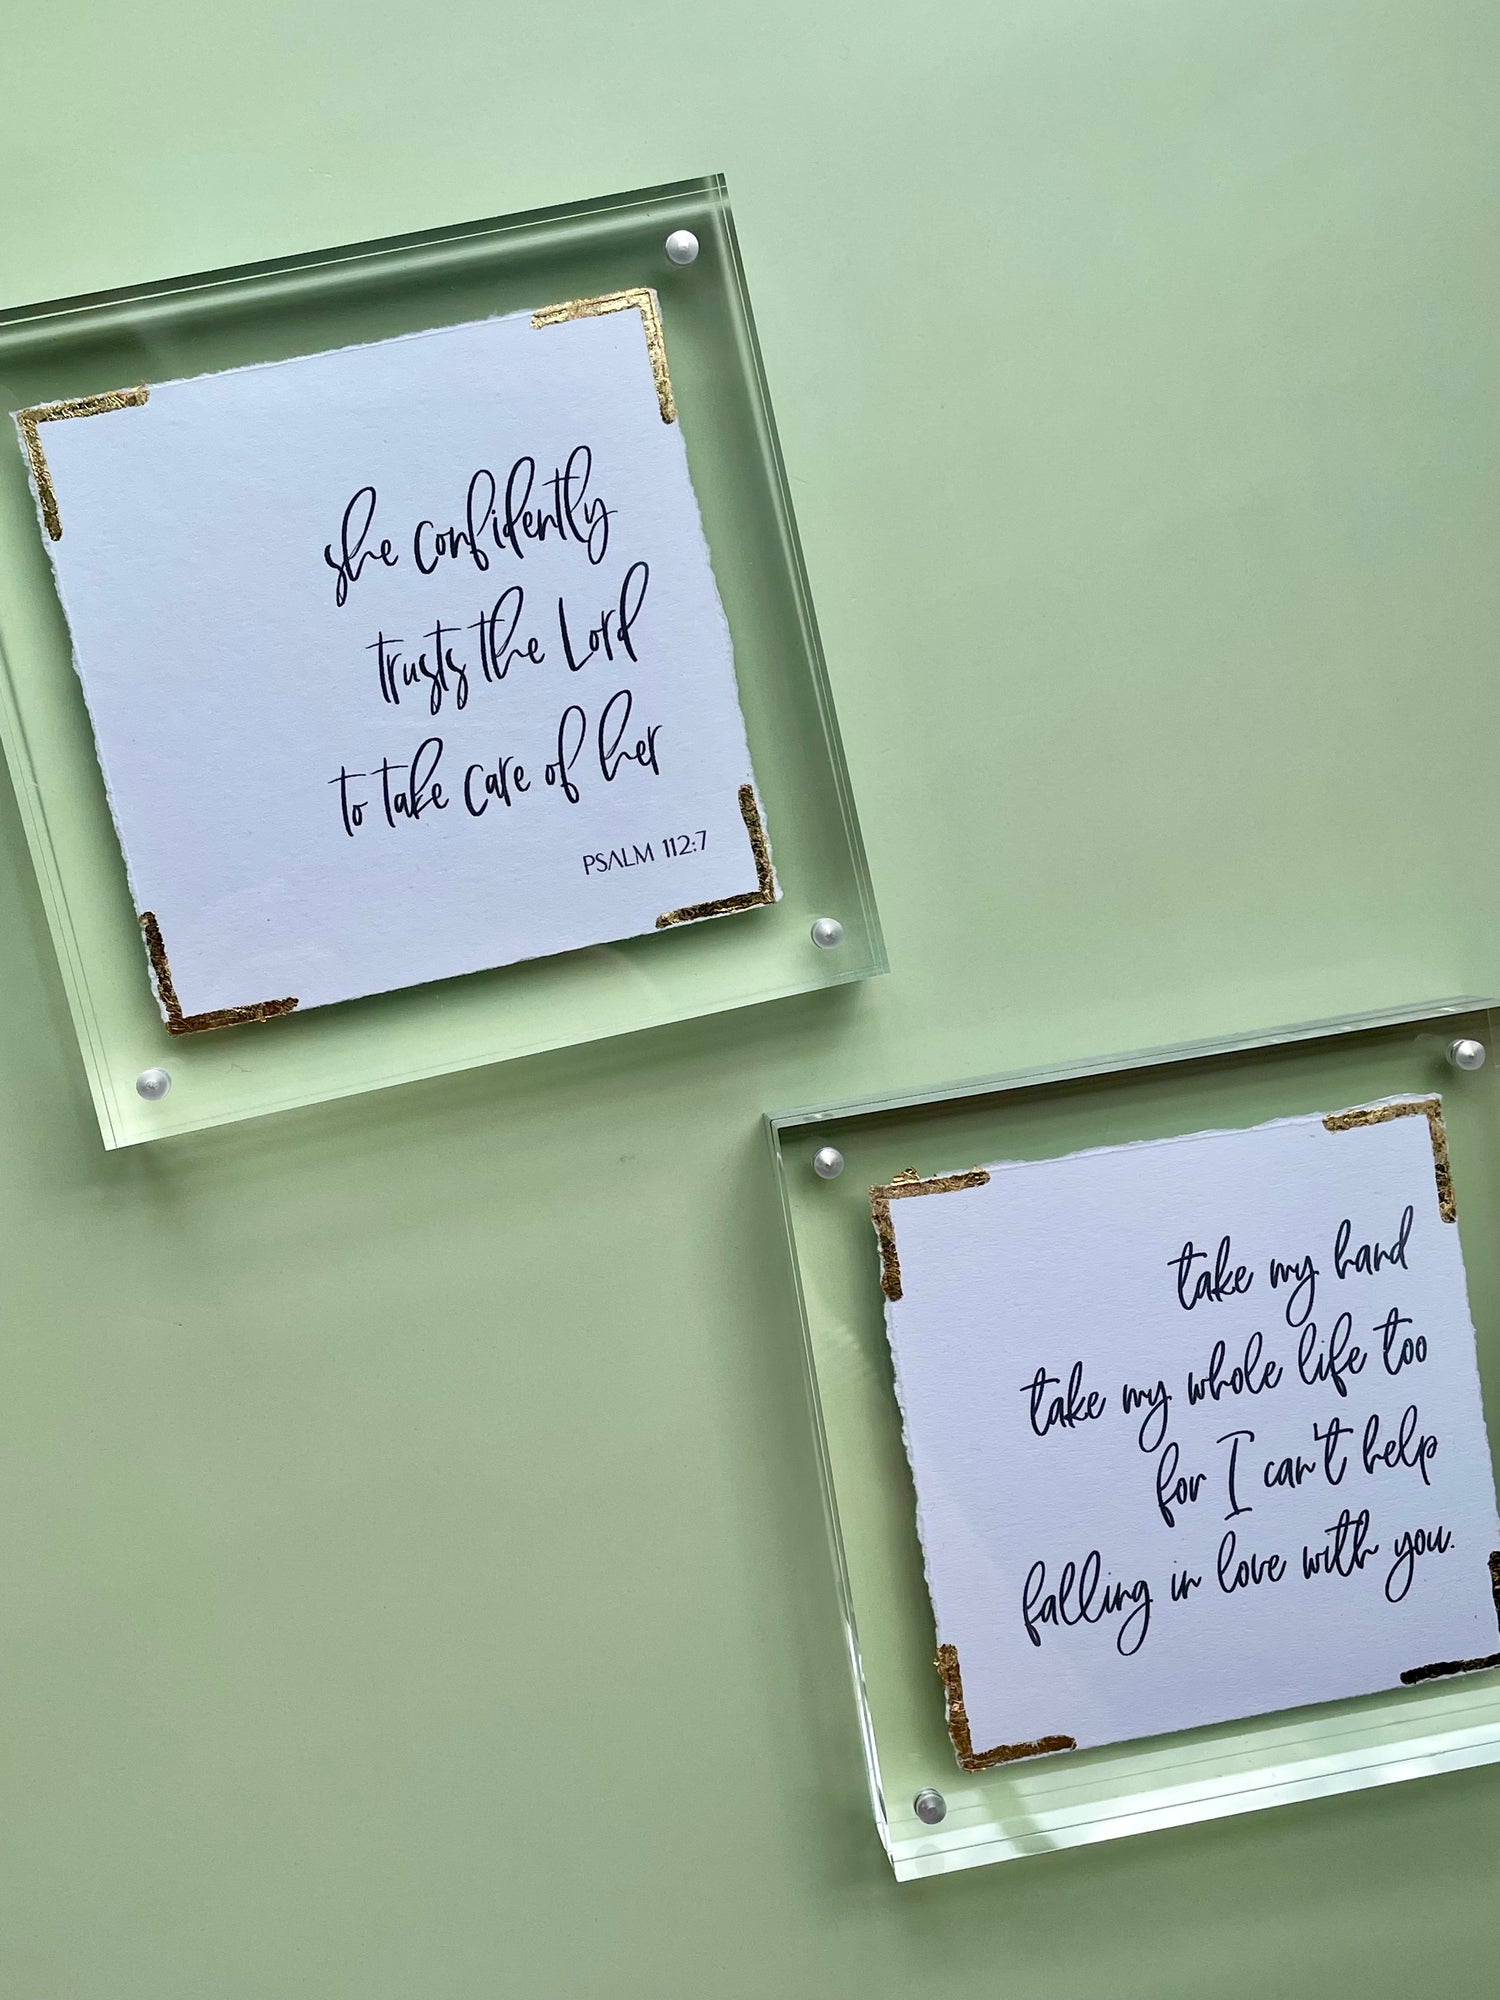 she confidently
trusts the Lord
to take care of her
PSALM 112:7
take my hand
take my whole life too
for I can't help
falling in love with you.